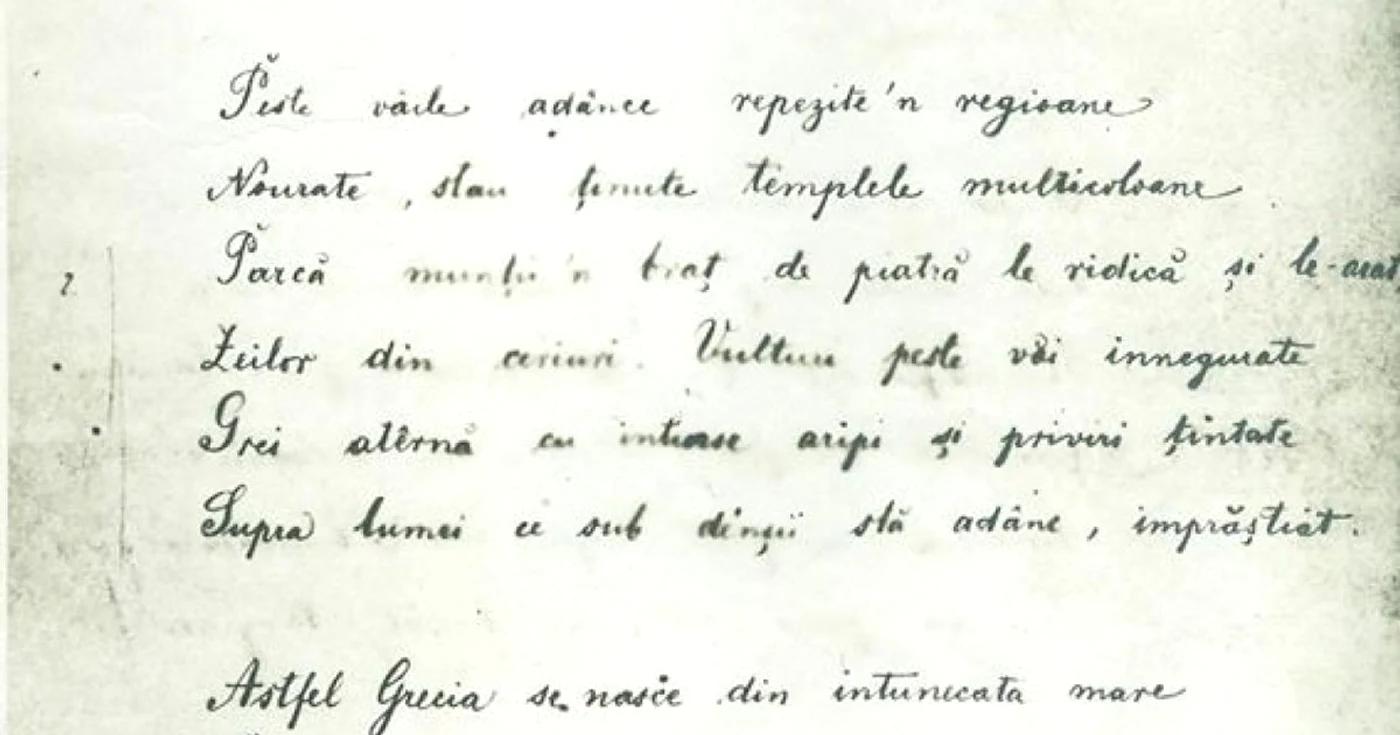 Peste văile adânce repezite 'n regioane
Nourate, stau ținute templele multicoloane
Parcă munții 'n braț de piatră le ridică și le-arat
Zeilor din ceriuri. Vulturi peste văi innegurate
Grei atêrnă cu intinse aripi și priviri țintate
Supra lumei ce sub dinșii stă adânc, imprăștiat.
Astfel Grecia se nasce din intunecata mare